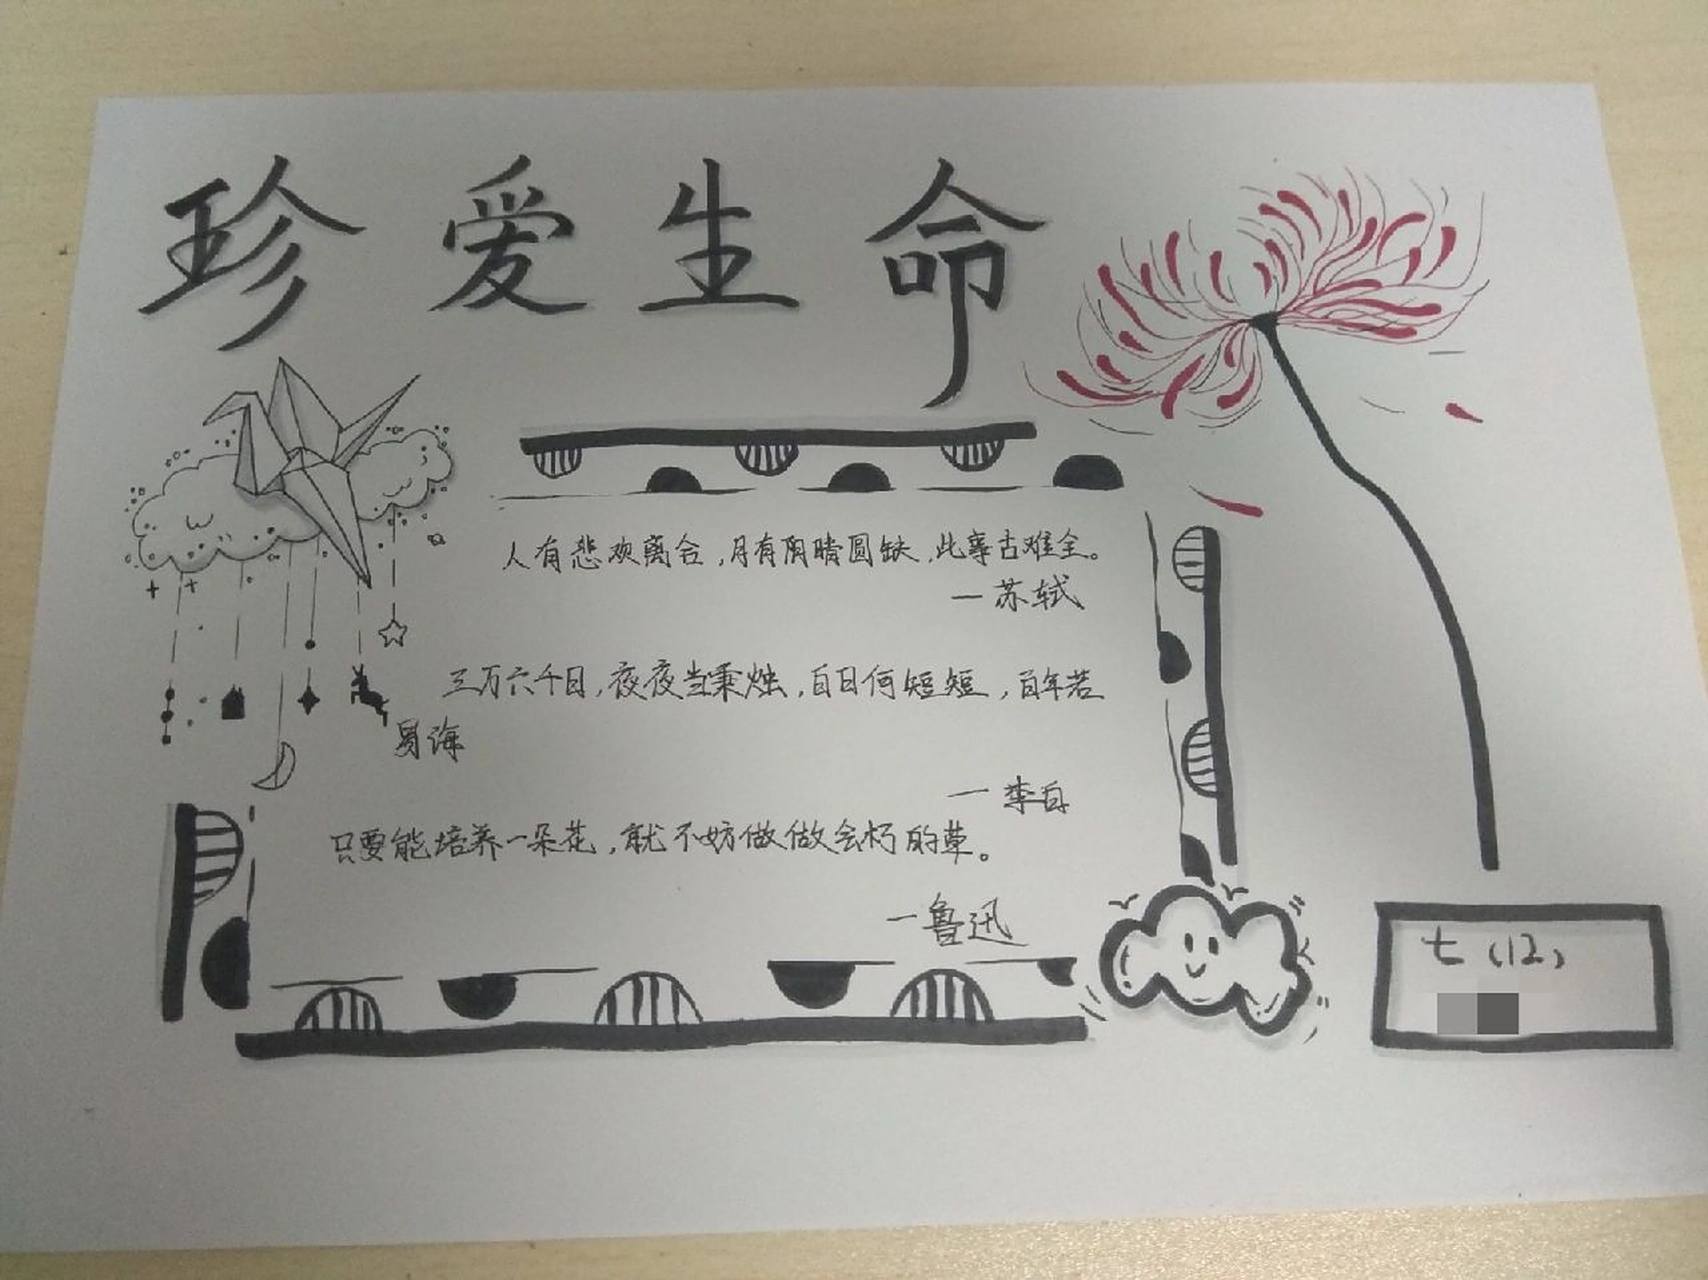 珍爱生命
人有悲欢离合，月有阴晴圆缺，此事古难全。
一苏轼
三万六千日，夜夜当秉烛，白日何短短，百年若
易海
一李白
只要能培养一朵花，就不妨做做会朽的草。
一鲁迅
七（12）